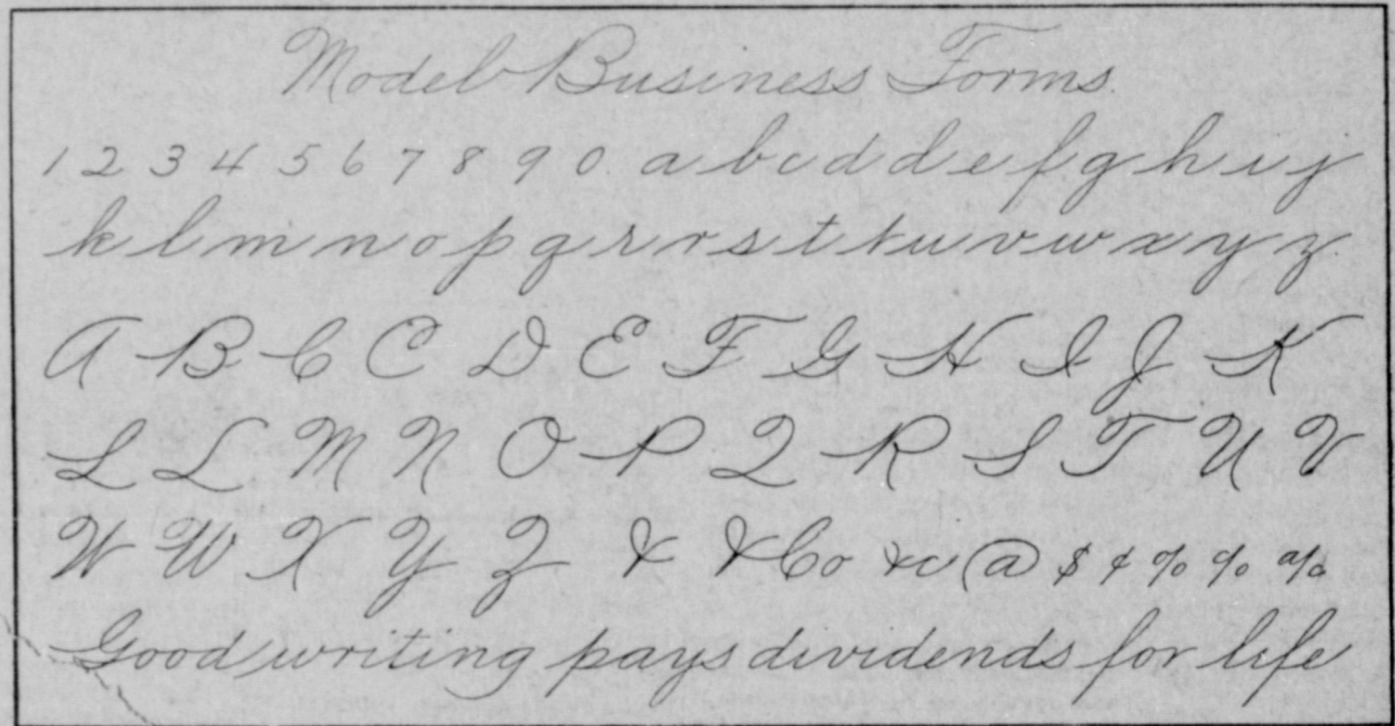 Model Business Forms
1 2 3 4 5 6 7 8 9 0 a b c d d e f g h i j
k l m n o p q r r s t t u v w x y z
A B C C D E F G H I J K
L L M N O P Q R S T U V
W W X Y Z & & Co &c @ $ ¢ % % a/c
Good writing pays dividends for life